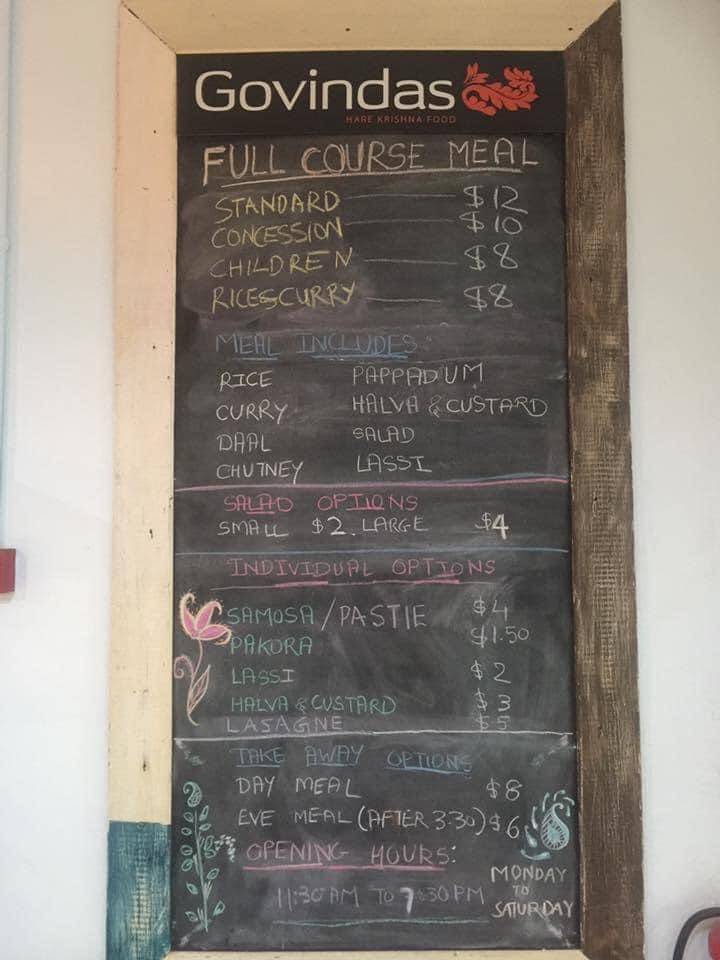 Govindas
HARE KRISHNA FOOD
FULL COURSE MEAL
STANDARD $12
CONCESSION $10
CHILDREN $8
RICE&CURRY $8
MEAL INCLUDES:
RICE PAPPADUM
CURRY HALVA & CUSTARD
DAAL SALAD
CHUTNEY LASSI
SALAD OPTIONS
SMALL $2. LARGE $4
INDIVIDUAL OPTIONS
SAMOSA/PASTIE $4
PAKORA $1.50
LASSI $2
HALVA & CUSTARD $3
LASAGNE $5
TAKE AWAY OPTIONS
DAY MEAL $8
EVE MEAL (AFTER 3.30) $6
OPENING HOURS:
11:30 AM TO 7:30 PM
MONDAY
TO
SATURDAY